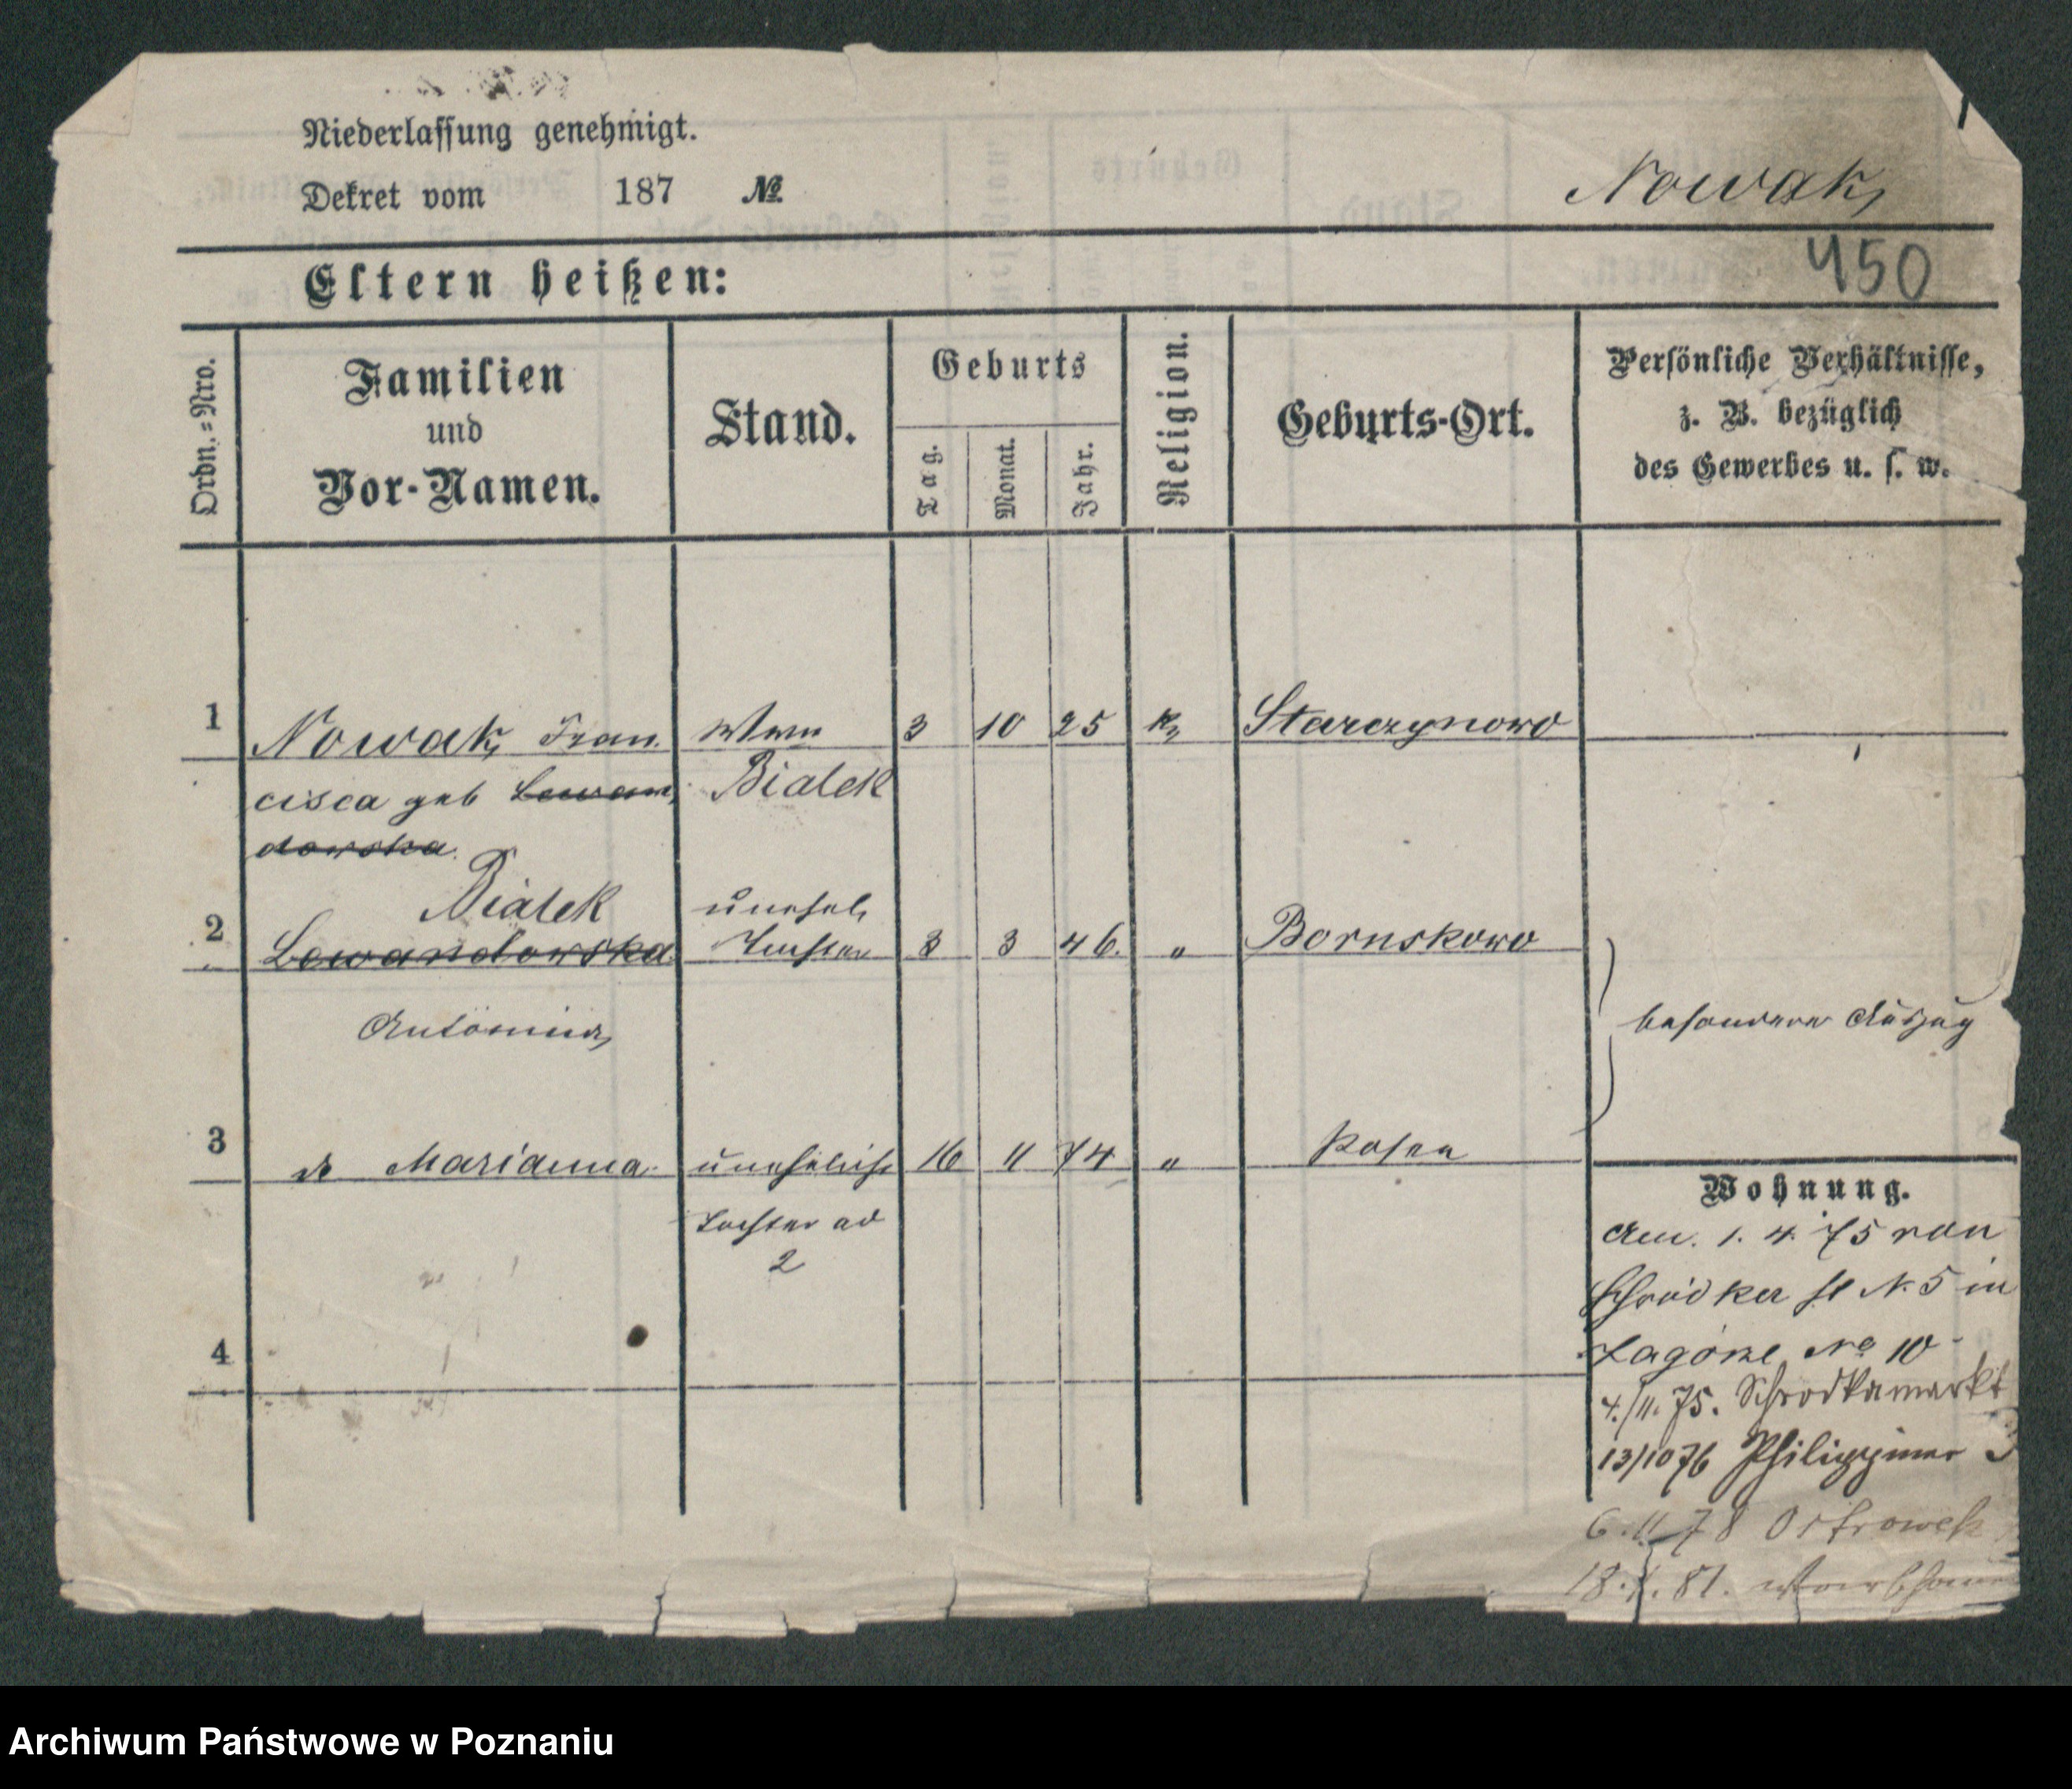 Niederlassung genehmigt.
Dekret vom 187 №
Nowak
450
Eltern heißen:
Ordn.=Nro.
Familien
und
Vor-Namen.
Stand.
Geburts
Tag.
Monat.
Jahr.
Religion.
Geburts-Ort.
Persönliche Verhältnisse,
z. B. bezüglich
des Gewerbes u. s. w.
1 Nowak Fran Wwe 3 10 25 k Starczynowo
cisca geb Lewan Bialek
dowska
Bialek unehel
2 Lewandowska Tochter 8 3 46. " Bornskowo
Antonina
besonderer Auszug
3 do Marianna unehelich 16 11 74 " Posen
Tochter ad
2
4
Wohnung.
Am. 1. 4. 75 von
Schrodker st N. 5 in
Zagorze No 10
4./11. 75. Schrodkamarkt
13/10 76 Philippiner 3
6.11 78 Ostrowek
18. . 81.
Archiwum Państwowe w Poznaniu